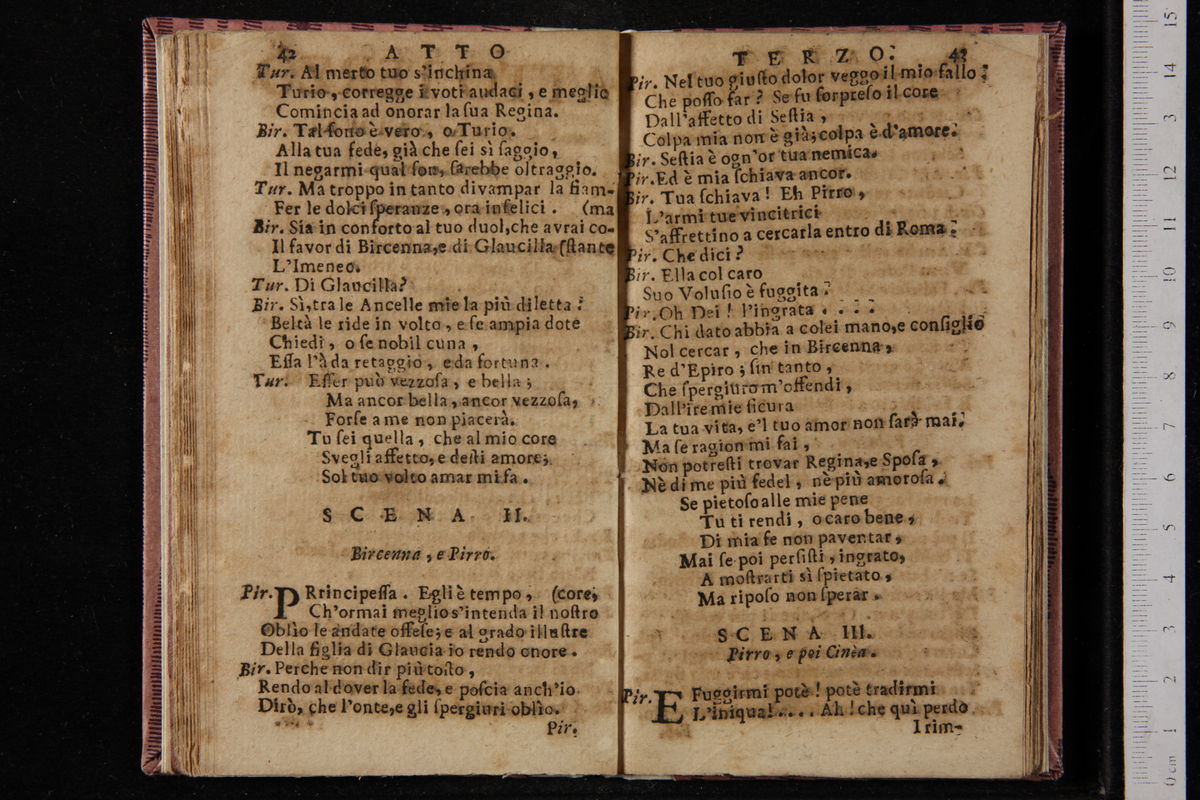 42 ATTO
Tur. Al merto tuo s'inchina
Turio, corregge i voti audaci, e meglio
Comincia ad onorar la ſua Regina.
Bir. Tal ſono è vero, o Turio.
Alla tua fede, già che ſei sì ſaggio,
Il negarmi qual ſon, ſarebbe oltraggio.
Tur. Ma troppo in tanto divampar la fiam-
Fer le dolci ſperanze, ora infelici. (ma
Bir. Sia in conforto al tuo duol, che avrai co-
Il favor di Bircenna, e di Glaucilla (ſtante
L'Imeneo.
Tur. Di Glaucilla?
Bir. Sì, tra le Ancelle mie la più diletta:
Beltà le ride in volto, e ſe ampia dote
Chiedi, o ſe nobil cuna,
Eſſa l'à da retaggio, e da fortuna.
Tur. Eſſer può vezzoſa, e bella;
Ma ancor bella, ancor vezzoſa,
Forſe a me non piacerà.
Tu ſei quella, che al mio core
Svegli affetto, e deſti amore;
Sol tuo volto amar mi fa.
SCENA II.
Bircenna, e Pirro.
Pir. PRrincipeſſa. Egli è tempo, (core,
Ch'ormai meglio s'intenda il noſtro
Oblìo le andate offeſe; e al grado illuſtre
Della figlia di Glaucia io rendo onore.
Bir. Perche non dir più toſto,
Rendo al dover la fede, e poſcia anch'io
Dirò, che l'onte, e gli ſpergiuri oblìo.
Pir.
TERZO. 43
Pir. Nel tuo giuſto dolor veggo il mio fallo:
Che poſſo far? Se fu ſorpreſo il core
Dall'affetto di Seſtia,
Colpa mia non è già; colpa è d'amore.
Bir. Seſtia è ogn'or tua nemica.
Pir. Ed è mia ſchiava ancor.
Bir. Tua ſchiava! Eh Pirro,
L'armi tue vincitrici
S'affrettino a cercarla entro di Roma.
Pir. Che dici?
Bir. Ella col caro
Suo Voluſio è fuggita.
Pir. Oh Dei! l'ingrata....
Bir. Chi dato abbia a colei mano, e conſiglio
Nol cercar, che in Bircenna,
Re d'Epiro; ſin tanto,
Che ſpergiuro m'offendi,
Dall'ire mie ſicura
La tua vita, e'l tuo amor non ſarà mai.
Ma ſe ragion mi fai,
Non potreſti trovar Regina, e Spoſa,
Nè di me più fedel, nè più amoroſa.
Se pietoſo alle mie pene
Tu ti rendi, o caro bene,
Di mia fe non paventar,
Mai ſe poi perſiſti, ingrato,
A moſtrarti sì ſpietato,
Ma ripoſo non ſperar.
SCENA III.
Pirro, e poi Cinèa.
Pir. E Fuggirmi potè! potè tradirmi
L'iniqua!.... Ah! che quì perdo
I rim-